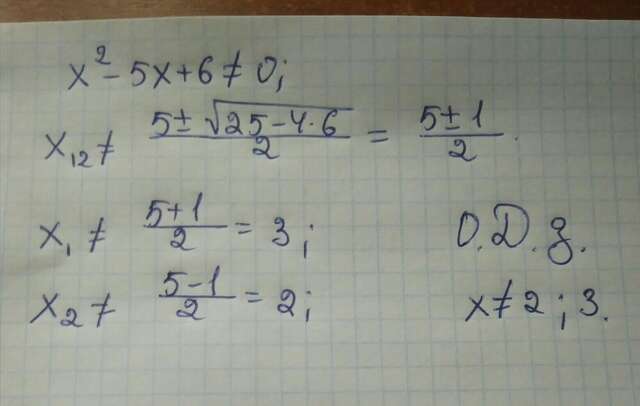 x² - 5x + 6 ≠ 0;
x₁₂ ≠ (5 ± √(25 - 4·6))/2 = (5 ± 1)/2.
x₁ ≠ (5+1)/2 = 3;
О.Д.З.
x₂ ≠ (5-1)/2 = 2;
x ≠ 2; 3.